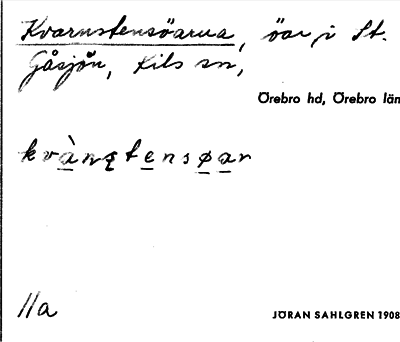 Kvarnstensöarna, öar i St.
Gåsjön, Kils sn,
Örebro hd, Örebro län
kvànstensøar
11a
JÖRAN SAHLGREN 1908